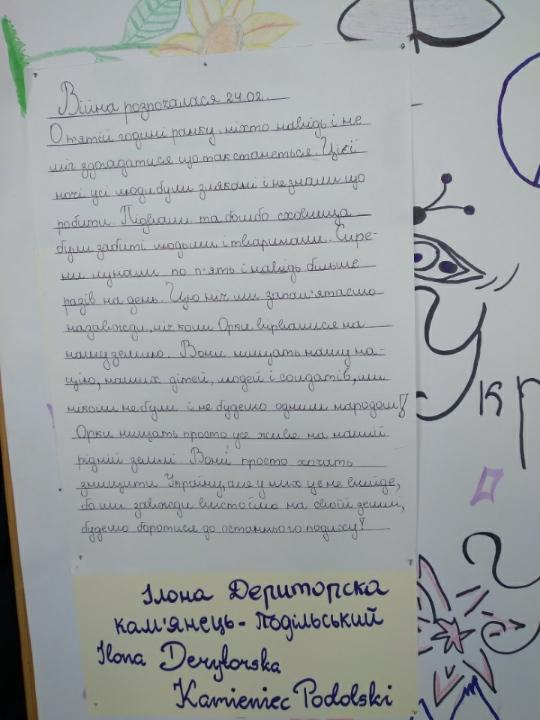 Війна розпочалася 24.02.
О пятій годині ранку, ніхто навідь і не
міг здогадатися що так станеться. Цієї
ночі усі люди були злякані і не знали що
робити. Підвали та бомбо сховища
були забиті людьми і тваринами. Сире-
ни лунали по п'ять і навідь більше
разів на день. Цю ніч ми запам'ятаємо
назавжди, ніч коли Орки вірвалися на
нашу землю. Вони нищать нашу на-
цію, наших дітей, людей і солдатів, ми
ніколи не були і не будемо одним народом!
Орки нищать просто усе живе на нашій
рідній землі Вони просто хочать
знищити Україну, але у них це не вийде,
бо ми завжди вистоїмо на своїй землі,
будемо боротися до останнього подиху!
Ілона
кам'янець-Подільський
Ilona
Kamieniec Podolski
Укр